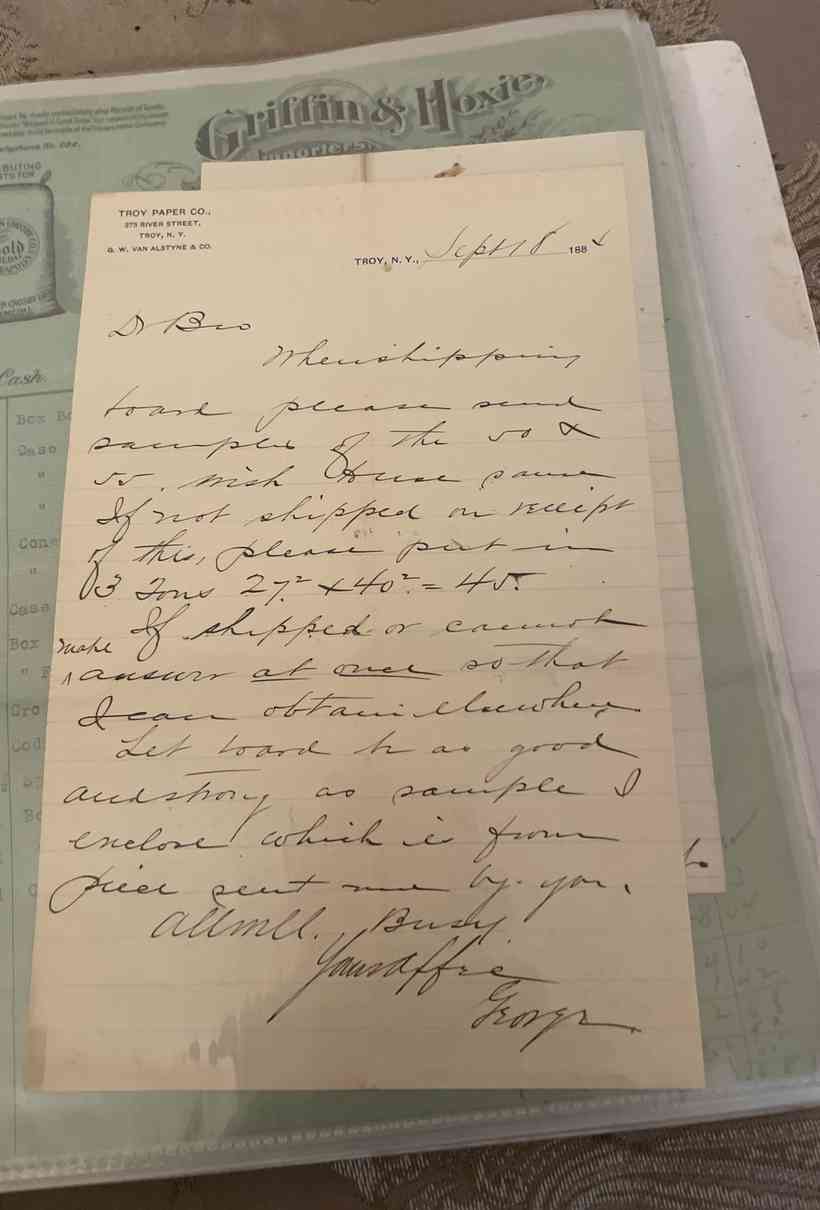 Griffin & Hoxie,
Importers,
TROY PAPER CO.,
275 RIVER STREET,
TROY, N. Y.
G. W. VAN ALSTYNE & CO.
TROY, N. Y., Sept 18 1884
D Bro
When shipping
board please send
samples of the 50 &
55. wish these same
If not shipped on receipt
of this, please put in
3 Tons 27.² x 40². = 45.
If shipped or cannot
make
answer at once so that
I can obtain elsewhere
Let board be as good
and strong as sample I
enclose which is from
piece sent me by you.
All well. Busy
Yours Affec
George
Cash.
Box
Case
"
"
"
Case
Box
"